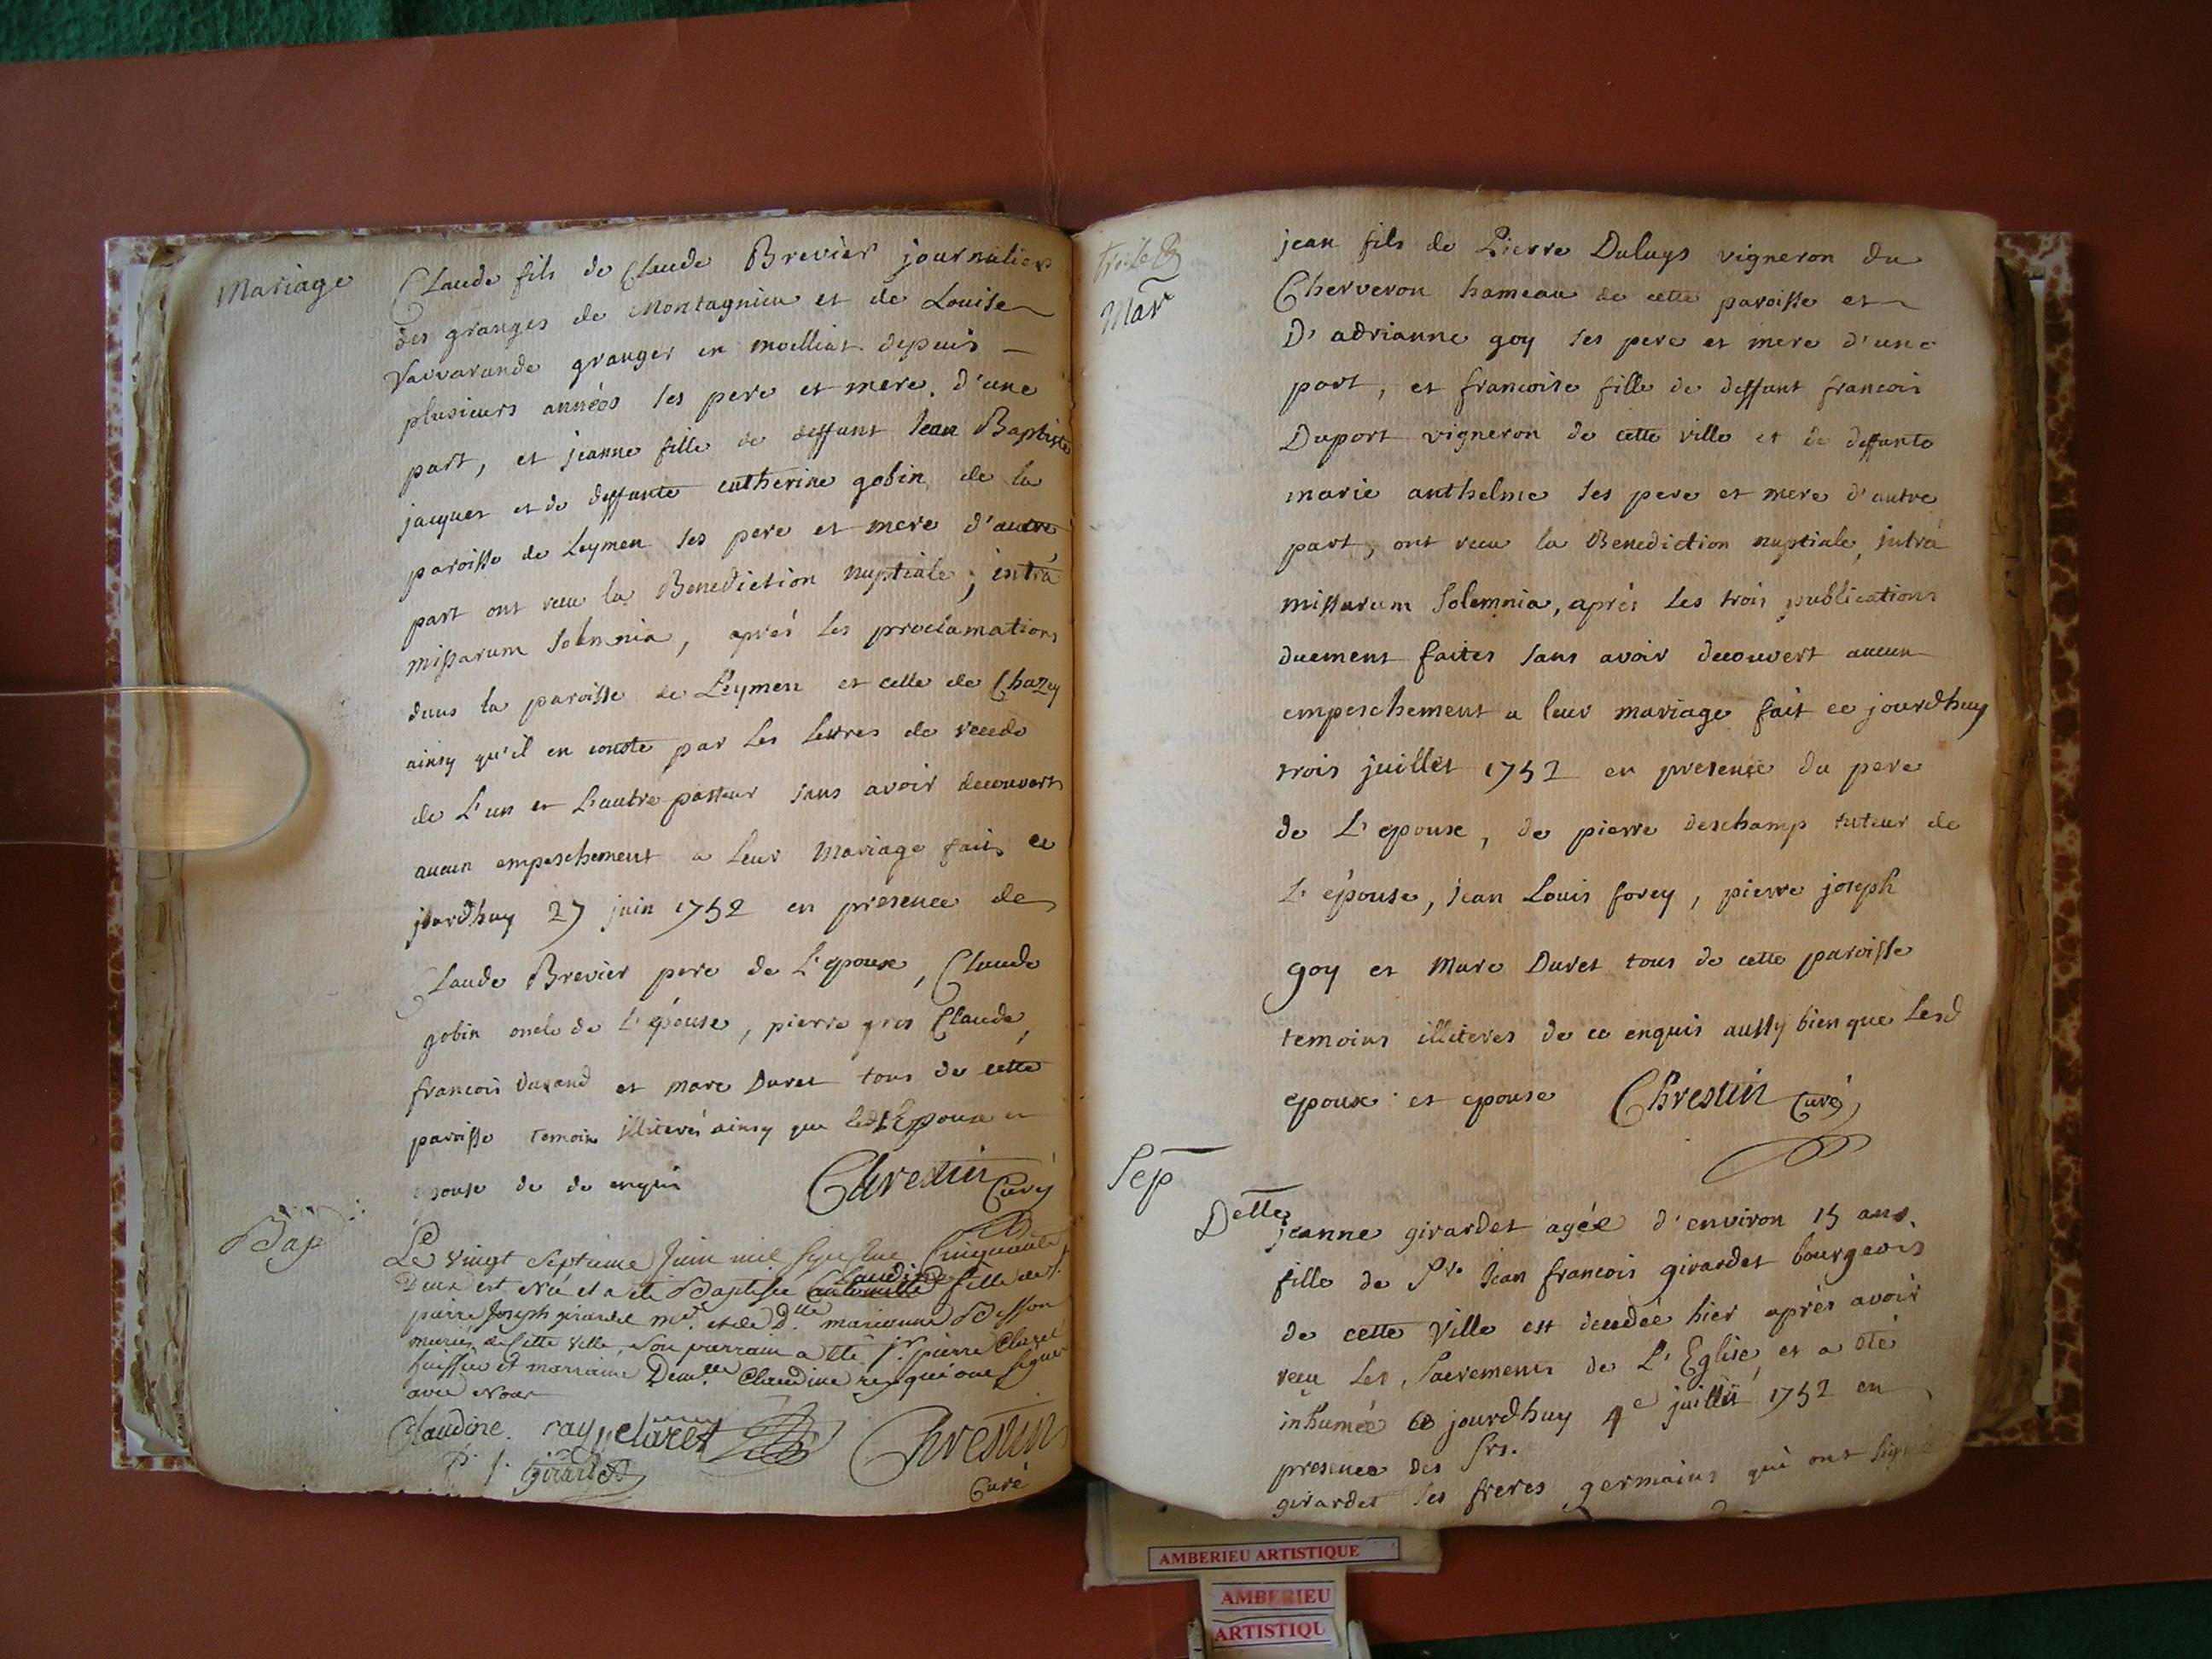 Mariage
Claude fils de Claude Brevier journalier
des granges de Montagnieu et de Louise
Vavvarande granger en moellias depuis
plusieurs années ses pere et mere d'une
part, et jeanne fille de deffunt Jean Baptiste
jacques et de deffunte catherine gobin de la
paroisse de Leymen ses pere et mere d'autre
part ont receu la Benediction nuptiale, intrà
missarum solemnia, aprés les proclamations
dans la paroisse de Leymen et celle de Chazey
ainsy qu'il en conste par les lettres de recedo
de L'un et L'autre pasteur sans avoir decouvert
aucun empeschement a leur Mariage fait ce
jourdhuy 27 juin 1752 en presence de
Claude Brevier pere de L'epoux, Claude
gobin oncle de L'épouse, pierre gros Claude,
francois Durand et marc Duret tous de cette
paroisse temoins illiterés ainsy que led Epoux et
epouse de ce enquis Chrestin Curé
Bap
Le vingt Septieme Juin mil Sept Cent Cinquante
Deux est Née et a ete Baptisée Claudine fille de Sr
pierre Joseph girardet md. et de Dlle marianne Besson
mariés de Cette ville, Son parrain a été Sr. pierre Claret
huissier et marraine Demlle Claudine rey qui ont Signé
avec Nous
Claudine ray p claret Chrestin
P. J. girardet Curé
Mar
jean fils de Pierre Duluys vigneron du
Cherveron hameau de cette paroisse et
D'adrianne goy ses pere et mere d'une
part, et francoise fille de deffunt francois
Duport vigneron de cette ville et de deffunte
marie anthelme ses pere et mere d'autre
part, ont receu la Benediction nuptiale, intrà
missarum Solemnia, aprés les trois publications
duement faites sans avoir decouvert aucun
empeschement a leur mariage fait ce jourdhuy
trois juillet 1752 en presence du pere
de L'epoux, de pierre deschamp tuteur de
L'épouse, jean Louis forey, pierre joseph
goy et Marc Duret tous de cette paroisse
temoins illiterés de ce enquis aussy bien que Lesd
epoux et epouse Chrestin Curé
Sep
Delle
jeanne girardet agée d'environ 15 ans,
fille de Sr. Jean francois girardet bourgeois
de cette Ville est decedée hier aprés avoir
receu Les Sacrements de L'Eglise, et a eté
inhumée ce jourdhuy 4e juillet 1752 en
presence des Srs.
girardet ses freres germains qui ont signé
AMBERIEU ARTISTIQUE
AMBERIEU
ARTISTIQU